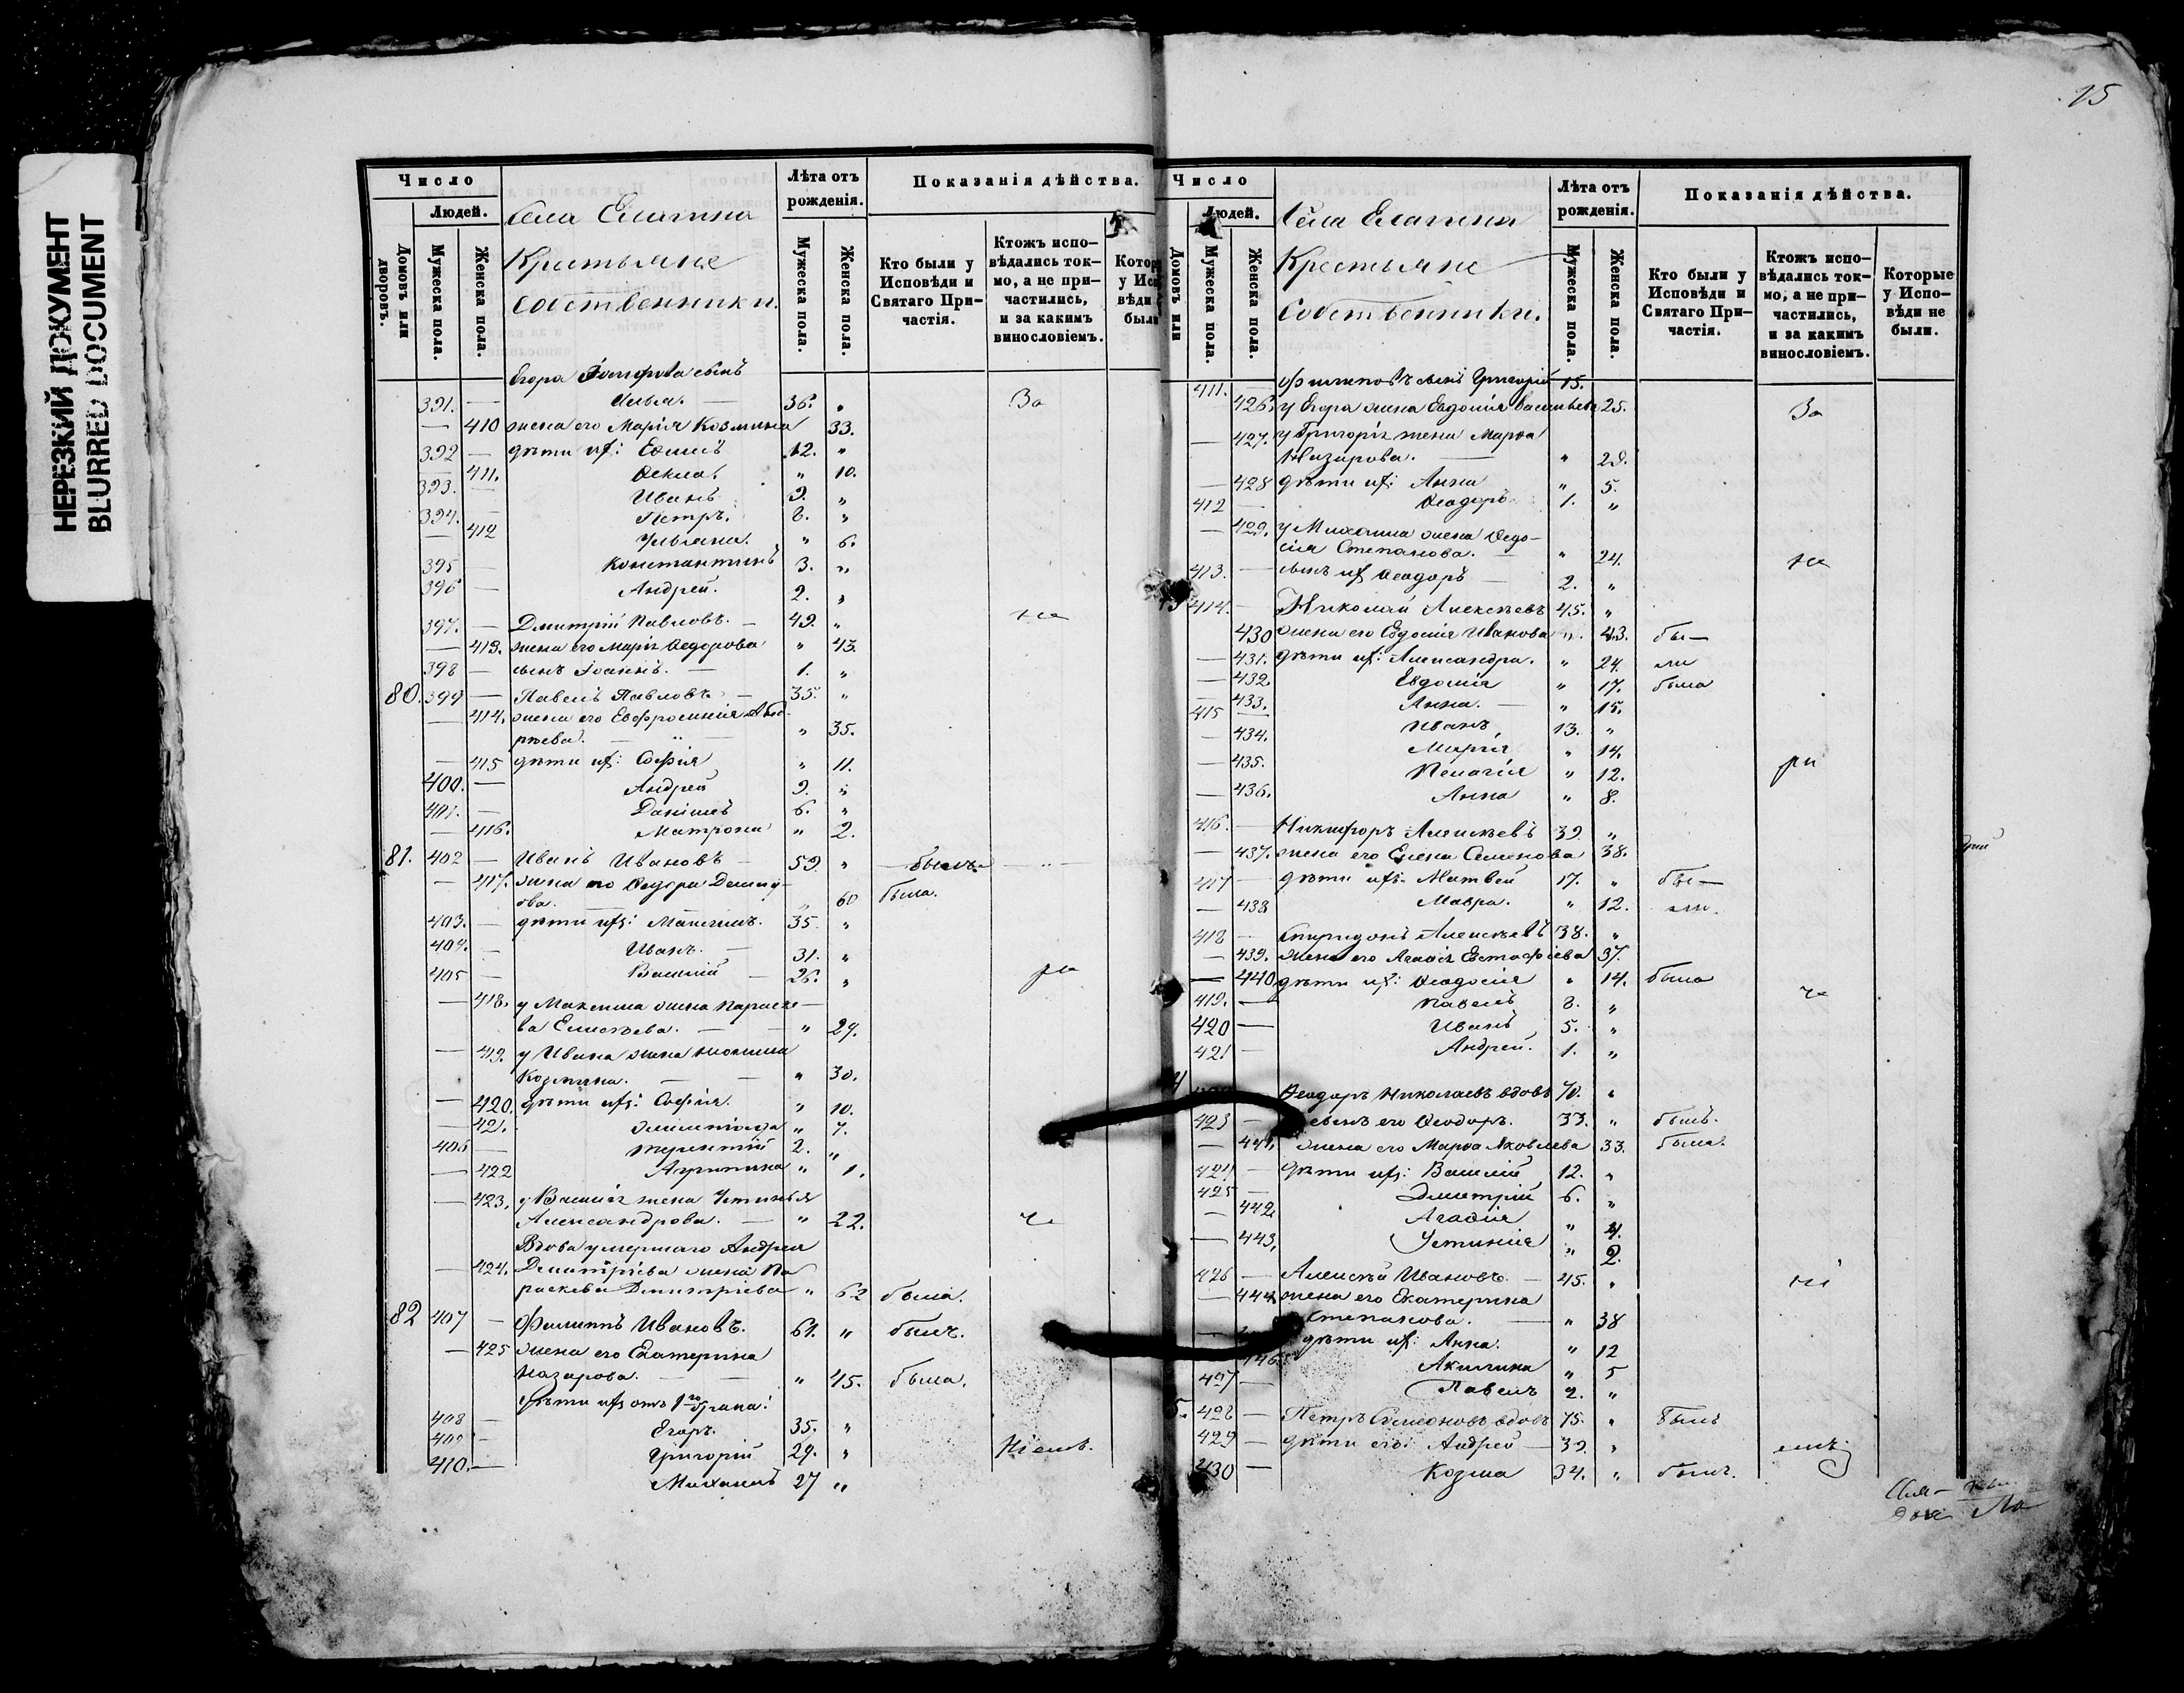 НЕРЕЗКИЙ ДОКУМЕНТ
BLURRED DOCUMENT
Число
Людей.
Домовъ или дворовъ.
Мужеска пола.
Женска пола.
Села Елагина
Крестьяне
собственники.
Лѣта отъ рожденія.
Мужеска пола.
Женска пола.
Показанія дѣйства.
Кто были у Исповѣди и Святаго Причастія.
Ктожъ исповѣдались токмо, а не причастились, и за какимъ винословіемъ.
Егора сынъ
391. — Илья. — 36. „ За
— 410 жена его Марія Козмина 33.
392 — дѣти ихъ: Евѳимъ 12. „
— 411. Ѳекла. „ 10.
393. — Иванъ 9. „
394. — Петръ. 8. „
— 412 Ульяна. „ 6.
395 — Константинъ 3. „
396 — Андрей. 2. „
397. — Дмитрій Павловъ. — 49. „ не
— 413. жена его Марія Ѳедорова „ 43.
398 — сынъ Іоаннъ. — 1. „
80. 399 — Павелъ Павловъ — 35. „
— 414. жена его Евфросинія Анд-
рѣева. „ 35.
— 415 дѣти ихъ: Софія „ 11.
400. — Андрей 9. „
401. — Даніилъ 6. „
— 416. Матрона „ 2.
81. 402 — Иванъ Ивановъ — 59. „ былъ
— 417. жена его Ѳедора Демид-
ова. „ 60 была.
403. — дѣти ихъ: Максимъ. 35. „
404. — Иванъ. — 31. „
405 — Василій — 26. „ ра
— 418. у Максима жена Параске-
ва Елисеева. — „ 29.
— 419. у Ивана жена
Козмина. — „ 30.
— 420. дѣти ихъ: Софія. „ 10.
— 421. Олимпіада „ 7.
406 — Терентій 2. „
— 422 Агрипина „ 1.
— 423. у Василія жена Устинья
Александрова. — „ 22.
Вдова умершаго Андрея
— 424. Дмитріева жена Па
раскева Дмитріева „ 62 была.
82 407 — Филиппъ Ивановъ. 61. „ былъ.
— 425 жена его Екатерина
Назарова. — „ 45. была.
Дѣти ихъ отъ 1го брака:
408 — Егоръ. 35. „
409 — Григорій 29. „
410. — Михаилъ 27 „
15
Число
Людей.
Домовъ или
Мужеска пола.
Женска пола.
Села Елагина
Крестьяне
Собственники.
Лѣта отъ рожденія.
Мужеска пола.
Женска пола.
Показанія дѣйства.
Кто были у Исповѣди и Святаго Причастія.
Ктожъ исповѣдались токмо, а не причастились, и за какимъ винословіемъ.
Которые у Исповѣди не были.
411. — Филиповъ сынъ Григорій 15.
426. у Егора жена Евдокія Васильева 25. За
— 427. у Григорія жена Марѳа
Назарова. — „ 29.
— 428 дѣти ихъ: Анна „ 5.
412 — Ѳеодоръ 1. „
— 429. у Михаила жена Ѳедо-
сія Степанова. — „ 24. не
413. — сынъ их Ѳеодоръ — 2. „
414. — Николай Алексѣевъ 45. „
430 жена его Евдокія Иванова „ 43. бы—
— 431. дѣти ихъ: Александра. „ 24. ли
— 432. Евдокія „ 17. была
— 433. Анна. — „ 15.
415 — Иванъ 13. „
— 434. Марія „ 14.
— 435. Пелагія „ 12. ри
— 436. Анна „ 8.
416. — Никифоръ Алексѣевъ 39 „
— 437. жена его Елена Семенова 38.
417 — дѣти ихъ: Матвей 17. „ бы—
— 438 Мавра. „ 12. ли.
418 — Спиридонъ Алексѣевъ 38. „
— 439. жена его Агаѳія Евстафіева 37.
— 440. дѣти ихъ: Ѳеодосія „ 14. была
419. — Павелъ 8. „
420 — Иванъ 5. „
421 — Андрей. 1. „
Ѳеодоръ Николаевъ вдовъ 70. „
423 — сынъ его Ѳеодоръ. 33. „ былъ.
— 441. жена его Марѳа Яковлева 33. была.
424 — дѣти ихъ: Василій 12. „
425 — Дмитрій 6. „
— 442. Агаѳія „ 4.
— 443. Устинія „ 2.
426 — Алексѣй Ивановъ. — 45. „
— 444. жена его Екатерина
Степанова. — „ 38
дѣти ихъ: Анна. „ 12
446. Акилина „ 5
427 — Павелъ 2. „
428 — Петръ Семеновъ вдовъ 75. „ былъ
429 — дѣти его: Андрей — 39. „
430 — Козма 34. „ былъ.